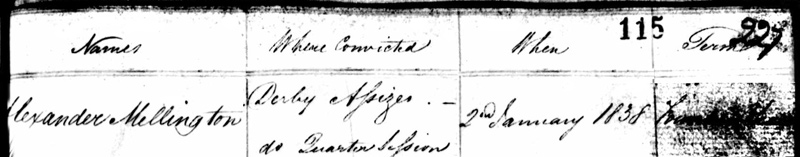 115 227
Names Where Convicted When Term
Alexander Mellington Derby Assizes . — 2nd January 1838
do Quarter Session